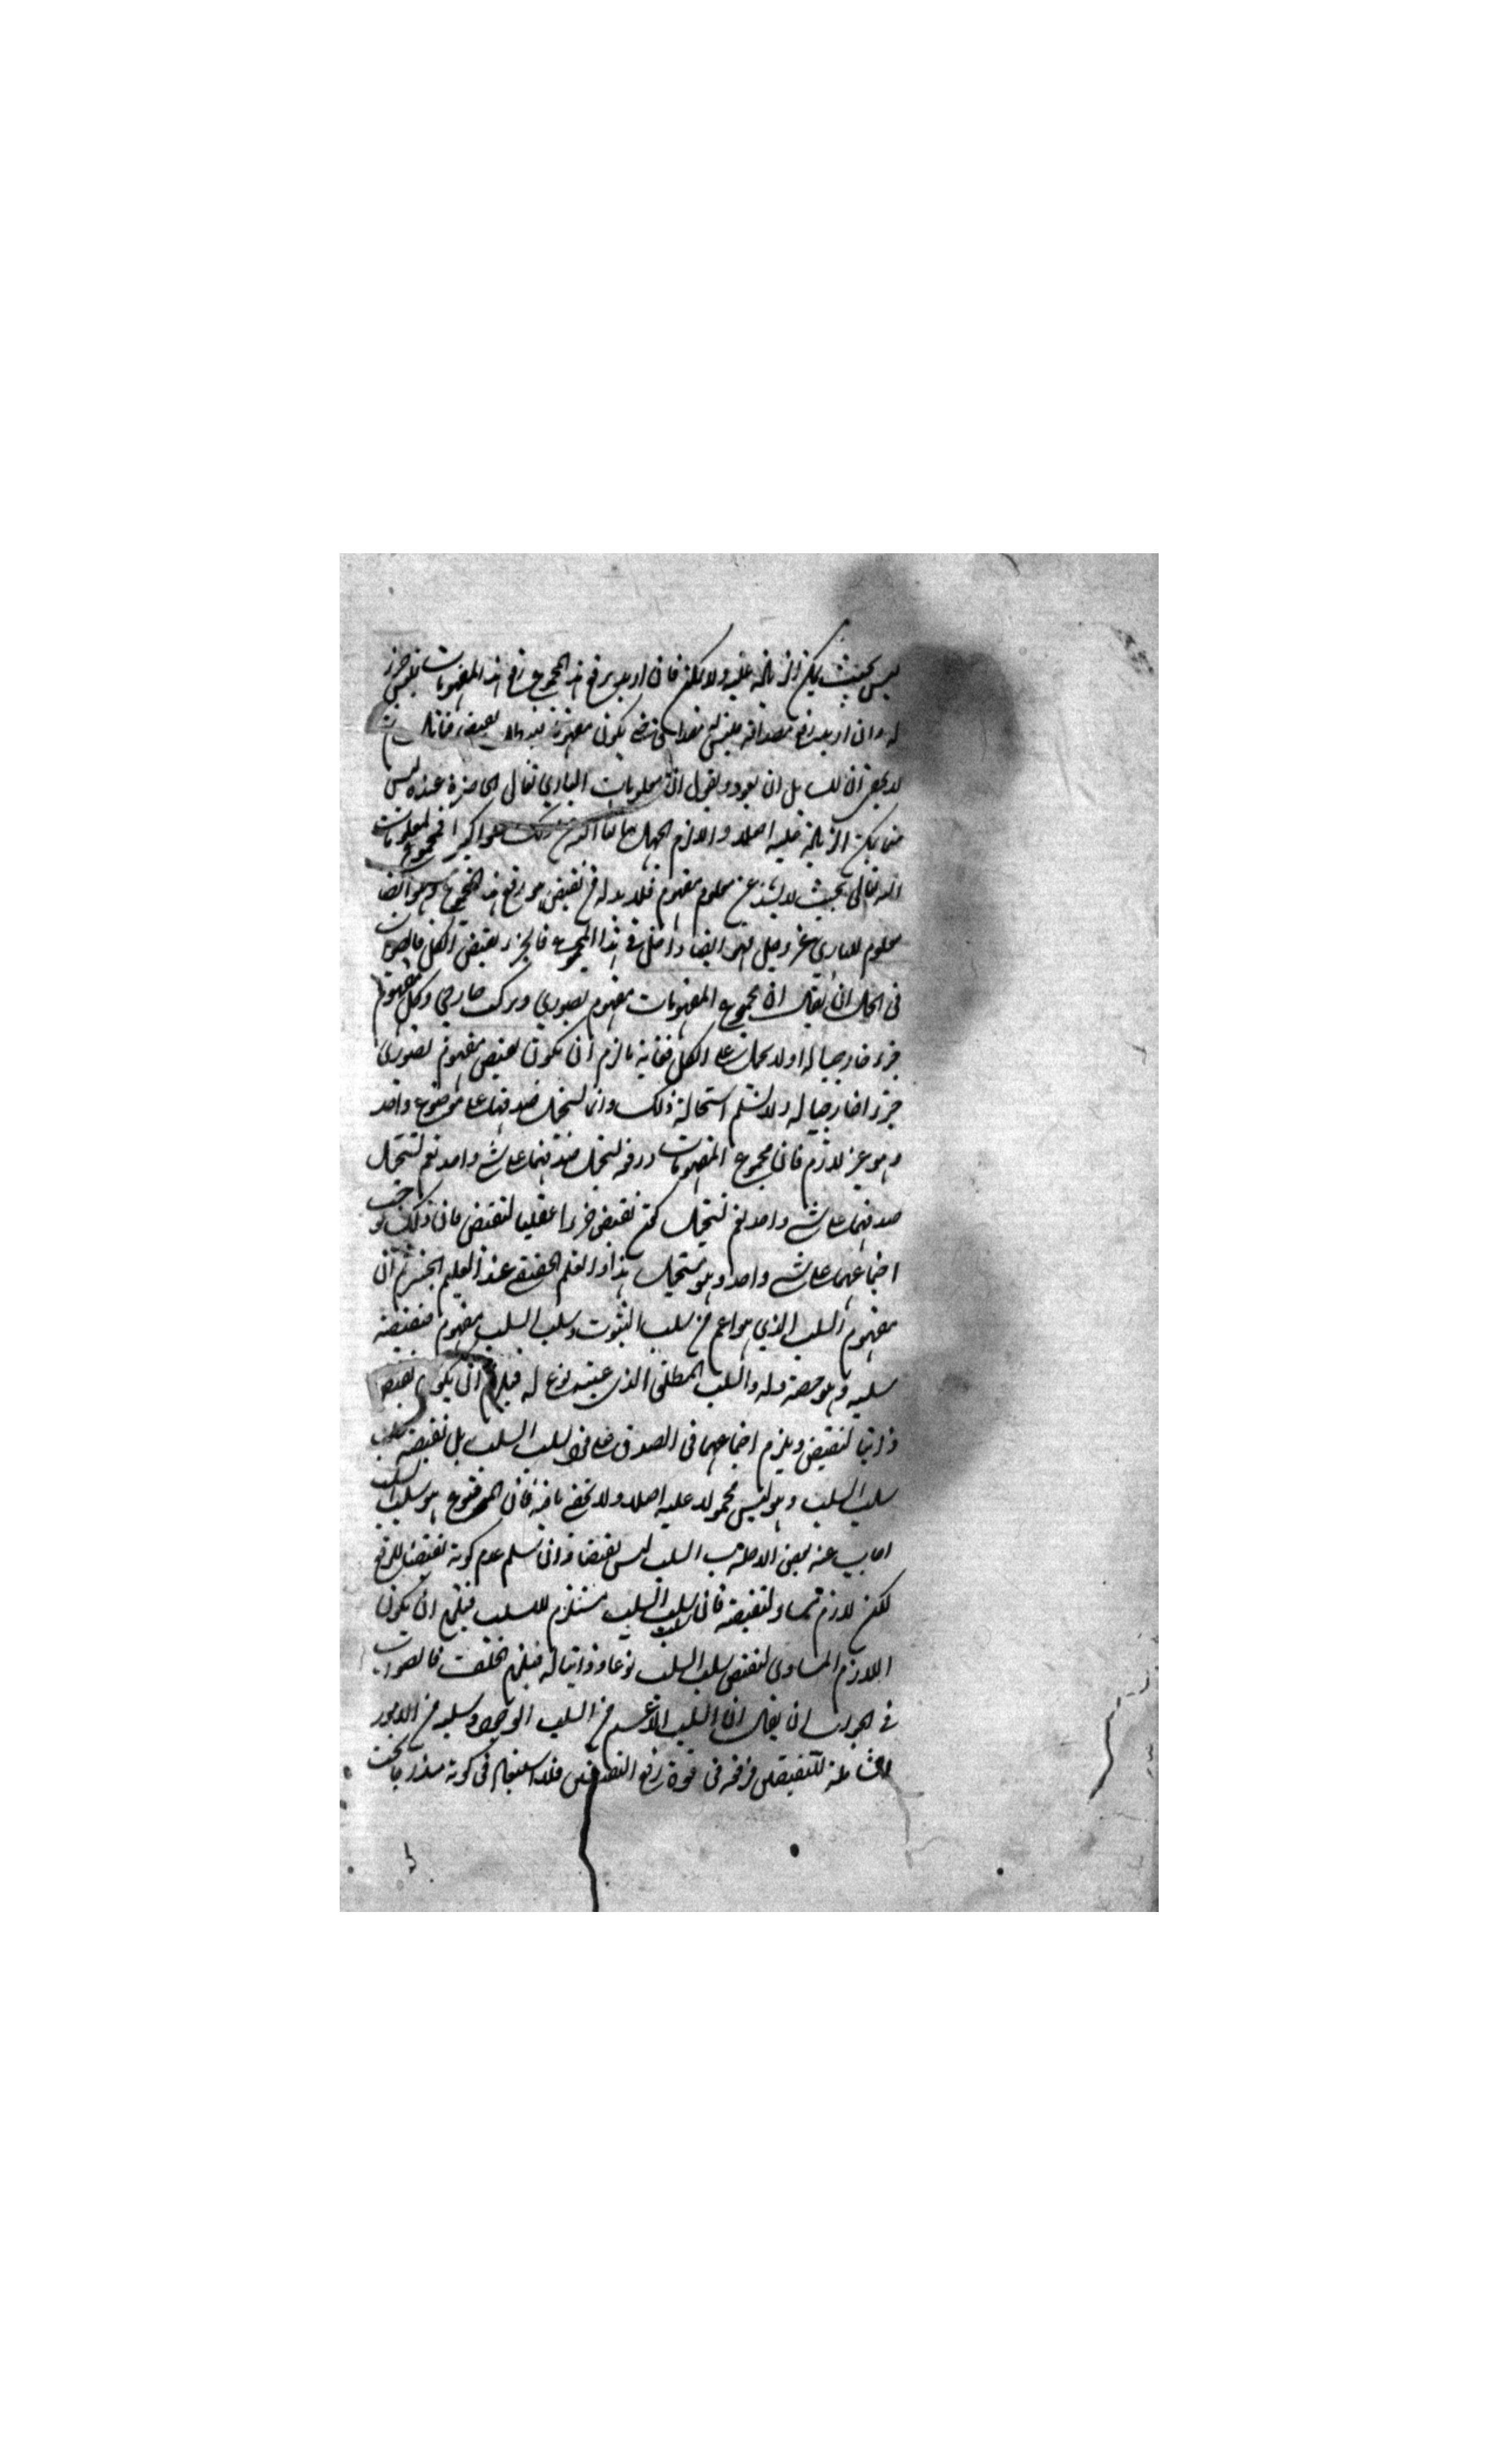 ليس بحيث يمكن الزيادة عليه ولا يمكن فان اريد برفع هذا المجموع رفع هذه المفهومات فليس جزء
له وان اريد رفع مصداقه فليس له مصداق حتى يكون مفهوم نقيضه
لا يقول ان معلومات الباري تعالى الحاضرة عنده ليس
يمكن الزيادة عليه اصلا والا لزم الجهل تعالى الله عن ذلك علوا كبيرا فمجموع معلومات
الله تعالى بحيث لا يشذ عن معلوم مفهوم فلا بد له من نقيض هو رفع هذا المجموع وهو ايضا
معلوم للباري عز وجل فهو ايضا داخل في هذا المجموع فالجزء نقيض الكل فالصواب
في الحل ان يقال ان مجموع المفهومات مفهوم تصوري ومركب خارجي وكل مفهوم
جزء خارجيا له اولا يحمل على الكل فغاية ما لزم ان يكون نقيض مفهوم تصوري
جزءا خارجيا له ولا نسلم استحالة ذلك وانما يستحيل صدقهما على موضوع واحد
وهو غير لازم فان مجموع المفهومات ورفعه يستحيل صدقهما على شيء واحد نعم يستحيل
صدقهما على شيء واحد نعم يستحيل كون نقيض جزءا عقليا لنقيض فان ذلك يوجب
اجتماعهما على شيء واحد وهو مستحيل هذا والعلم الحقيقي عند العليم الخبير ثم ان
مفهوم السلب الذي هو اعم من سلب الثبوت وسلب السلب مفهوم فنقيضه
سلبه وهو حصة له والسلب المطلق الذي عينه نوع له فيلزم ان يكون نقيض
ذاتيا لنقيض ويلزم اجتماعهما في الصدق على سلب السلب بل نقيضه سلب
سلب السلب وهو ليس محمولا عليه اصلا ولا يخفى ما فيه فان المرفوع هو سلب السلب
اجاب عنه بعض الاجلة سلب السلب ليس نقيضا وان نسلم عدم كونه نقيضا للرفع
لكن لازم مساو لنقيضه فان سلب سلب السلب مستلزم للسلب فيلزم ان يكون
اللازم المساوي لنقيض سلب السلب نوعا وذاتيا له فيلزم الخلف فالصواب
في الجواب ان يقال ان السلب الاعم من السلب الوجودي وسلبه من الامور
الشاملة للنقيضين فرفعه في قوة رفع النقيضين فلا استبعاد في كونه مندرجا تحت